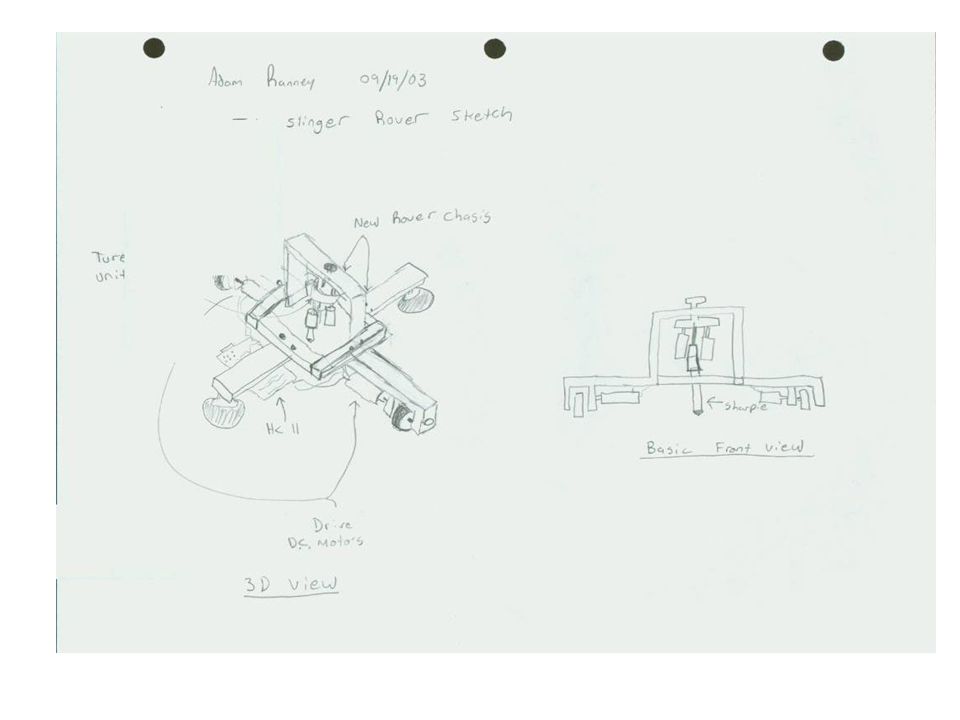 Adam Ranney 09/19/03
- Slinger Rover Sketch
New Rover Chasis
Ture
unit
Sharpie
HC 11
Basic Front View
Drive
D.C. Motors
3D View